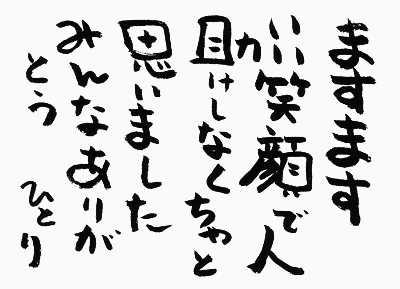 ますます
いい笑顔で人
助けしなくちゃと
思いました
みんなありが
とう ひとり